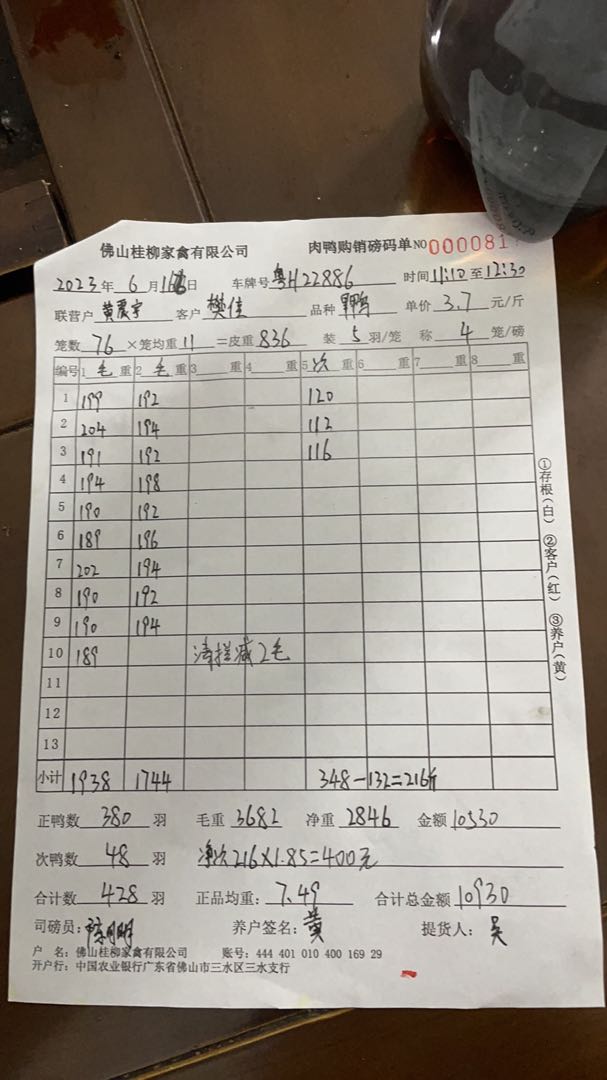 佛山桂柳家禽有限公司 肉鸭购销磅码单 NO 000081
2023年 6月 16日 车牌号 粤H22886 时间 11:10 至 12:30
联营户 黄震宇 客户 樊佳 品种 单价 3.7 元/斤
笼数 76 ×笼均重 11 =皮重 836 装 5 羽/笼 称 4 笼/磅
编号 1 毛 重 2 毛 重 3 重 4 重 5 次 重 6 重 7 重 8 重
1 199 192 120
2 204 194 112
3 191 192 116
4 194 198
5 190 192
6 189 196
7 202 194
8 190 192
9 190 194
10 189 减2毛
11
12
13
小计 1938 1744 348-132=216斤
正鸭数 380 羽 毛重 3682 净重 2846 金额 10530
次鸭数 48 羽 净次216×1.85=400元
合计数 428 羽 正品均重: 7.49 合计总金额 10930
司磅员: 养户签名: 黄 提货人: 吴
户 名: 佛山桂柳家禽有限公司 账号: 444 401 010 400 169 29
开户行: 中国农业银行广东省佛山市三水区三水支行
①存根(白) ②客户(红) ③养户(黄)